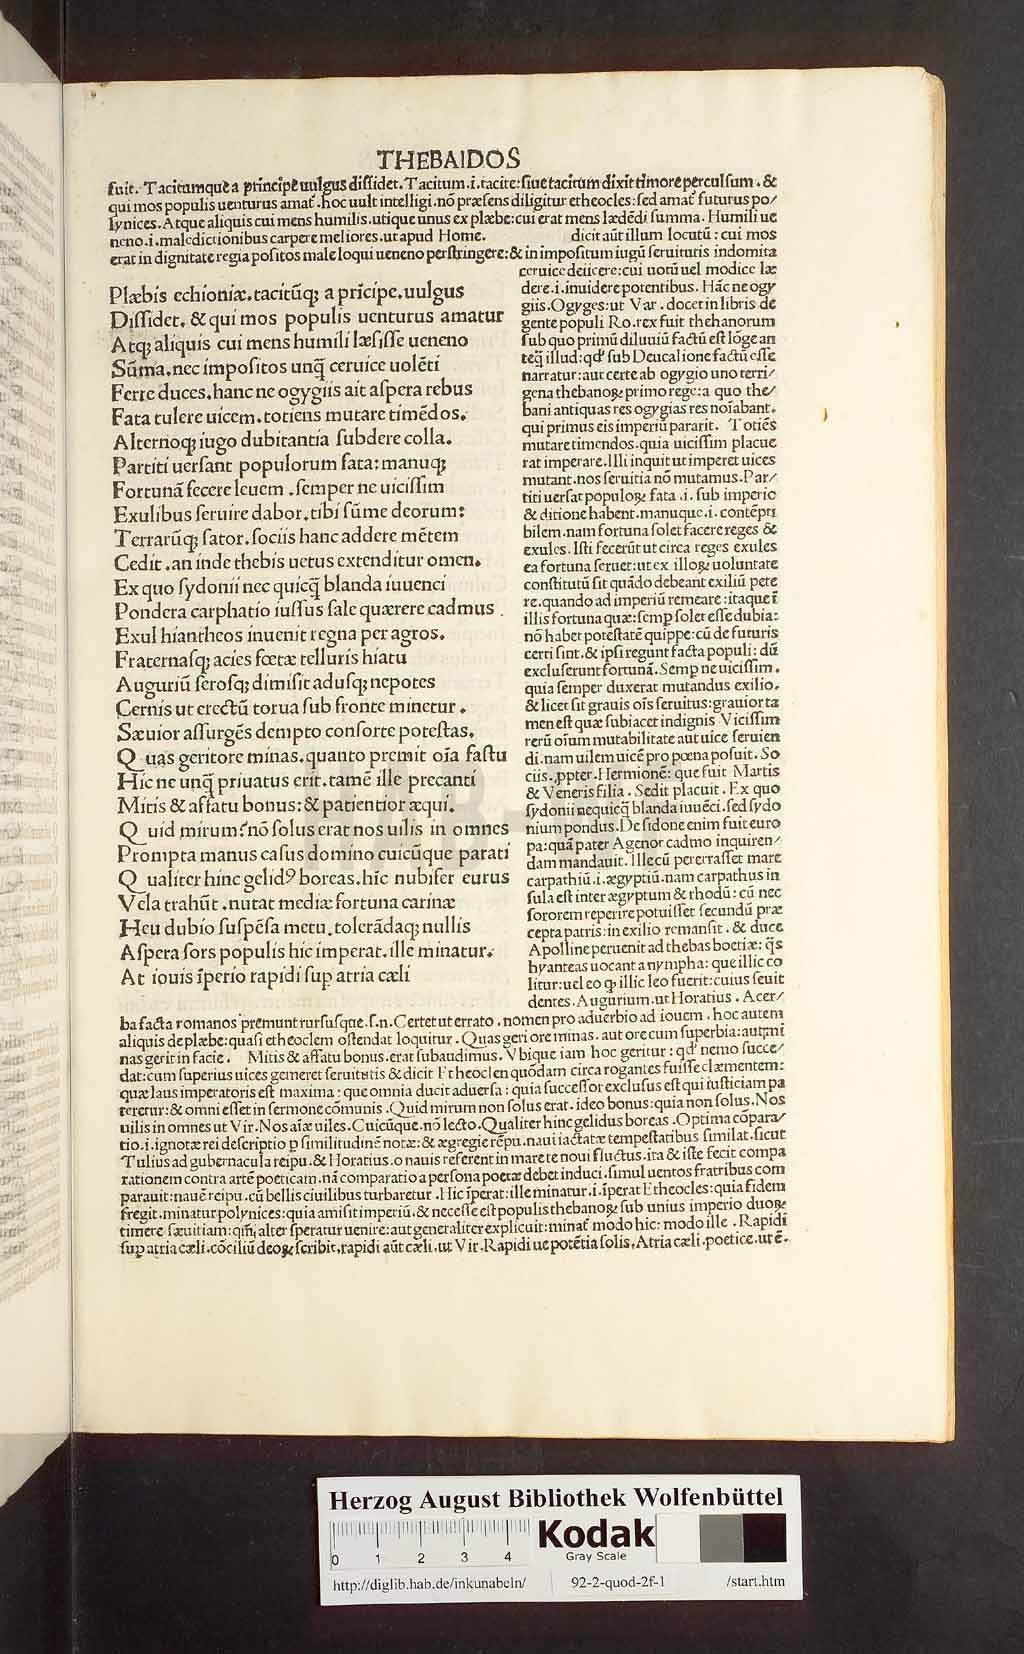 THEBAIDOS
fuit. Tacitumque a prĩcipe uulgus dissidet. Tacitum .i. tacite: siue tacitum dixit timore perculsum. &
qui mos populis uenturus amat̃. hoc uult intelligi. nõ præsens diligitur etheocles: sed amat̃ futurus po/
lynices. Atque aliquis cui mens humilis. utique unus ex plæbe: cui erat mens lædẽdi summa. Humili ue
neno .i. maledictionibus carpere meliores. ut apud Home. dicit aũt illum locutũ: cui mos
erat in dignitate regia positos male loqui ueneno perstringere: & in impositum iugũ seruitutis indomita
Plæbis echioniæ. tacitũqꝫ a prĩcipe. uulgus
Dissidet. & qui mos populis uenturus amatur
Atqꝫ aliquis cui mens humili læsisse ueneno
Sũma. nec impositos unq̃ ceruice uolẽti
Ferre duces. hanc ne ogygiis ait aspera rebus
Fata tulere uicem. totiens mutare timẽdos.
Alternoqꝫ iugo dubitantia subdere colla.
Partiti uersant populorum fata: manuqꝫ
Fortunã fecere leuem. semper ne uicissim
Exulibus seruire dabor. tibi sũme deorum:
Terrarũqꝫ sator. sociis hanc addere mẽtem
Cedit. an inde thebis uetus extenditur omen.
Ex quo sydonii nec quicq̃ blanda iuuenci
Pondera carphatio iussus sale quærere cadmus.
Exul hiantheos inuenit regna per agros.
Fraternasqꝫ acies fœtæ telluris hiatu
Auguriũ serosqꝫ dimisit adusqꝫ nepotes
Cernis ut erectũ torua sub fronte minetur.
Sæuior assurgẽs dempto consorte potestas.
Quas geritore minas. quanto premit oĩa fastu
Hic ne unq̃ priuatus erit. tamẽ ille precanti
Mitis & affatu bonus: & patientior æqui.
Quid mirum? nõ solus erat nos uilis in omnes
Prompta manus casus domino cuicũque parati
Qualiter hinc gelidꝰ boreas. hĩc nubifer eurus
Vela trahũt. nutat mediæ fortuna carinæ
Heu dubio suspẽsa metu. tolerãdaqꝫ nullis
Aspera sors populis hic imperat. ille minatur.
At iouis ĩperio rapidi suꝑ atria cæli
ceruice deiicere: cui uotũ uel modice læ
dere .i. inuidere potentibus. Hãc ne ogy
giis. Ogyges: ut Var. docet in libris de
gente populi Ro. rex fuit thebanorum
sub quo primũ diluuiũ factũ est lõge an
teq̃ illud: qd̃ sub Deucalione factũ esse
narratur: aut certe ab ogygio uno terri/
gena thebanoꝝ primo rege: a quo the/
bani antiquas res ogygias res noĩabant.
qui primus eis imperiũ pararit. Totiẽs
mutare timendos. quia uicissim placue
rat imperare. Illi inquit ut imperet uices
mutant. nos seruitia nõ mutamus. Par/
titi uersãt populoꝝ fata .i. sub imperio
& ditione habent. manuque .i. contẽpti
bilem. nam fortuna solet facere reges &
exules. Isti fecerũt ut circa reges exules
ea fortuna seruet: ut ex illoꝝ uoluntate
constitutũ sit quãdo debeant exiliũ pete
re. quando ad imperiũ remeare: itaque ĩ
illis fortuna quæ: semꝑ solet esse dubia:
nõ habet potestatẽ quippe: cũ de futuris
certi sint. & ipsi regunt facta populi: dũ
excluserunt fortunã. Semꝑ ne uicissim.
quia semper duxerat mutandus exilio.
& licet sit grauis oĩs seruitus: grauior ta
men est quæ subiacet indignis Vicissim
rerũ oĩum mutabilitate aut uice seruien
di. nam uilem uicẽ pro pœna posuit. So
ciis. ꝓpter. Hermionẽ: que fuit Martis
& Veneris filia. Sedit placuit. Ex quo
sydonii nequicq̃ blanda iuuẽci. sed sydo
nium pondus. De sidone enim fuit euro
pa: quã pater Agenor cadmo inquiren/
dam mandauit. Ille cũ pererrasset mare
carpathiũ .i. ægyptiũ. nam carpathus in
sula est inter ægyptum & rhodũ: cũ nec
sororem reperire potuisset secundũ præ
cepta patris: in exilio remansit. & duce
Apolline peruenit ad thebas boetiæ: q̃s
hyanteas uocant a nympha: que illic co
litur: uel eo ꝙ illic leo fuerit: cuius seuit
dentes. Augurium. ut Horatius. Acer/
ba facta romanos premunt rursusque .s.n. Certet ut errato. nomen pro aduerbio ad iouem. hoc autem
aliquis de plæbe: quasi etheoclem ostendat loquitur. Quas geri ore minas. aut ore cum superbia: aut mi
nas gerit in facie. Mitis & affatu bonus. erat subaudimus. Vbique iam hoc geritur: qd̃ nemo succe/
dat: cum superius uices gemeret seruitutis & dicit Etheoclen quõdam circa rogantes fuisse clæmentem:
quæ laus imperatoris est maxima: que omnia ducit aduersa: quia successor exclusus est qui iusticiam pa
teretur: & omni esset in sermone cõmunis. Quid mirum non solus erat. ideo bonus: quia non solus. Nos
uilis in omnes ut Vir. Nos aĩæ uiles. Cuicũque. nõ lecto. Qualiter hinc gelidus boreas. Optima cõpara/
tio .i. ignotæ rei descriptio ꝑ similitudinẽ notæ: & ægregie rẽpu. naui iactatæ tempestatibus similat. sicut
Tulius ad gubernacula reipu. & Horatius. o nauis referent in mare te noui fluctus. ita & iste fecit compa
rationem contra artẽ poeticam. nã comparatio a persona poetæ debet induci. simul uentos fratribus com
parauit: nauẽ reipu. cũ bellis ciuilibus turbaretur. Hic ĩperat: ille minatur .i. ĩperat Etheocles: quia fidem
fregit. minatur polynices: quia amisit imperiũ. & necesse est populis thebanoꝝ sub unius imperio duoꝝ
timere sæuitiam: qm̃ alter speratur uenire: aut generaliter explicuit: minat̃ modo hic: modo ille. Rapidi
suꝑ atria cæli. cõciliũ deoꝝ scribit. rapidi aũt cæli. ut Vir. Rapidi ue potẽtia solis. Atria cæli. poetice. ut ẽ.
Herzog August Bibliothek Wolfenbüttel
0 1 2 3 4
Kodak
Gray Scale
http://diglib.hab.de/inkunabeln/ 92-2-quod-2f-1 /start.htm